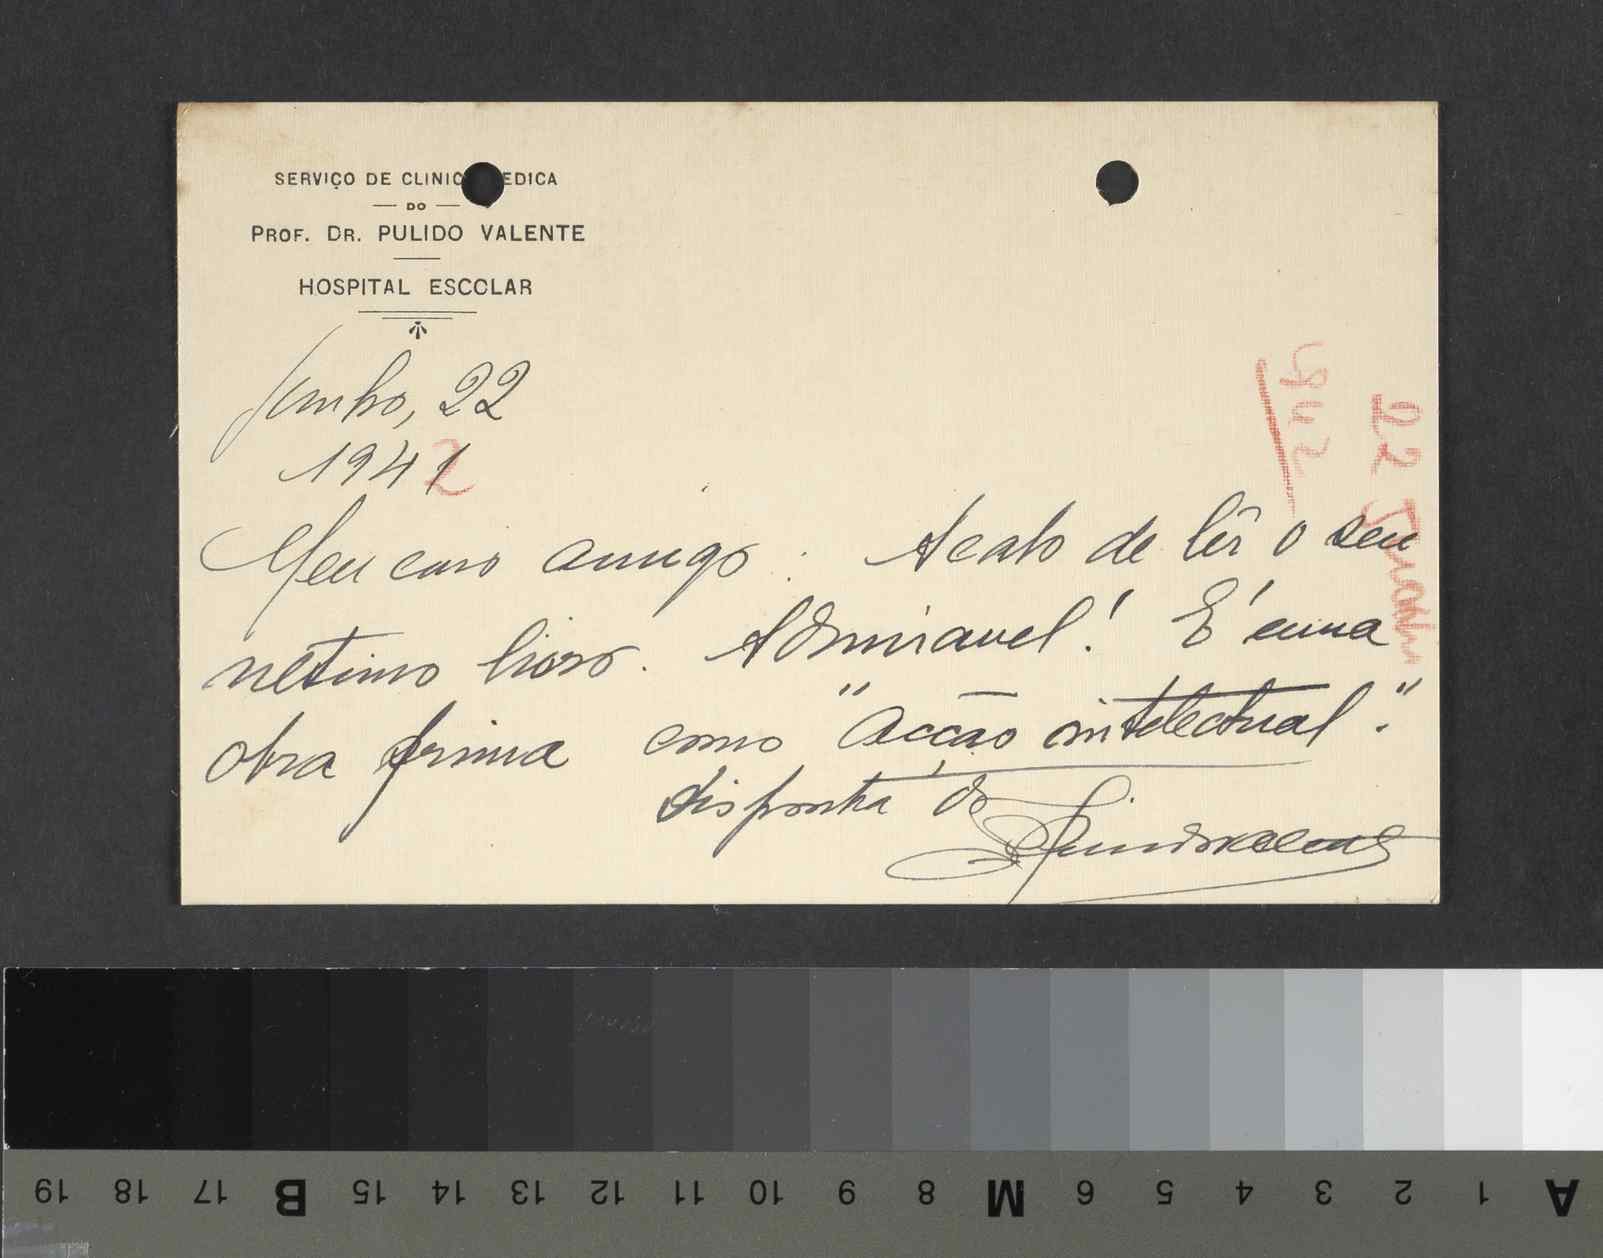 SERVIÇO DE CLINIC EDICA
DO
PROF. DR. PULIDO VALENTE
HOSPITAL ESCOLAR
Junho, 22
1942
942
22 Junho
Meu caro amigo: Acabo de lêr o seu
ultimo livro. Admiravel! E' uma
obra prima como "acção intelectual".
do
19 18 17 B 15 14 13 12 11 10 9 8 M 6 5 4 3 2 1 A